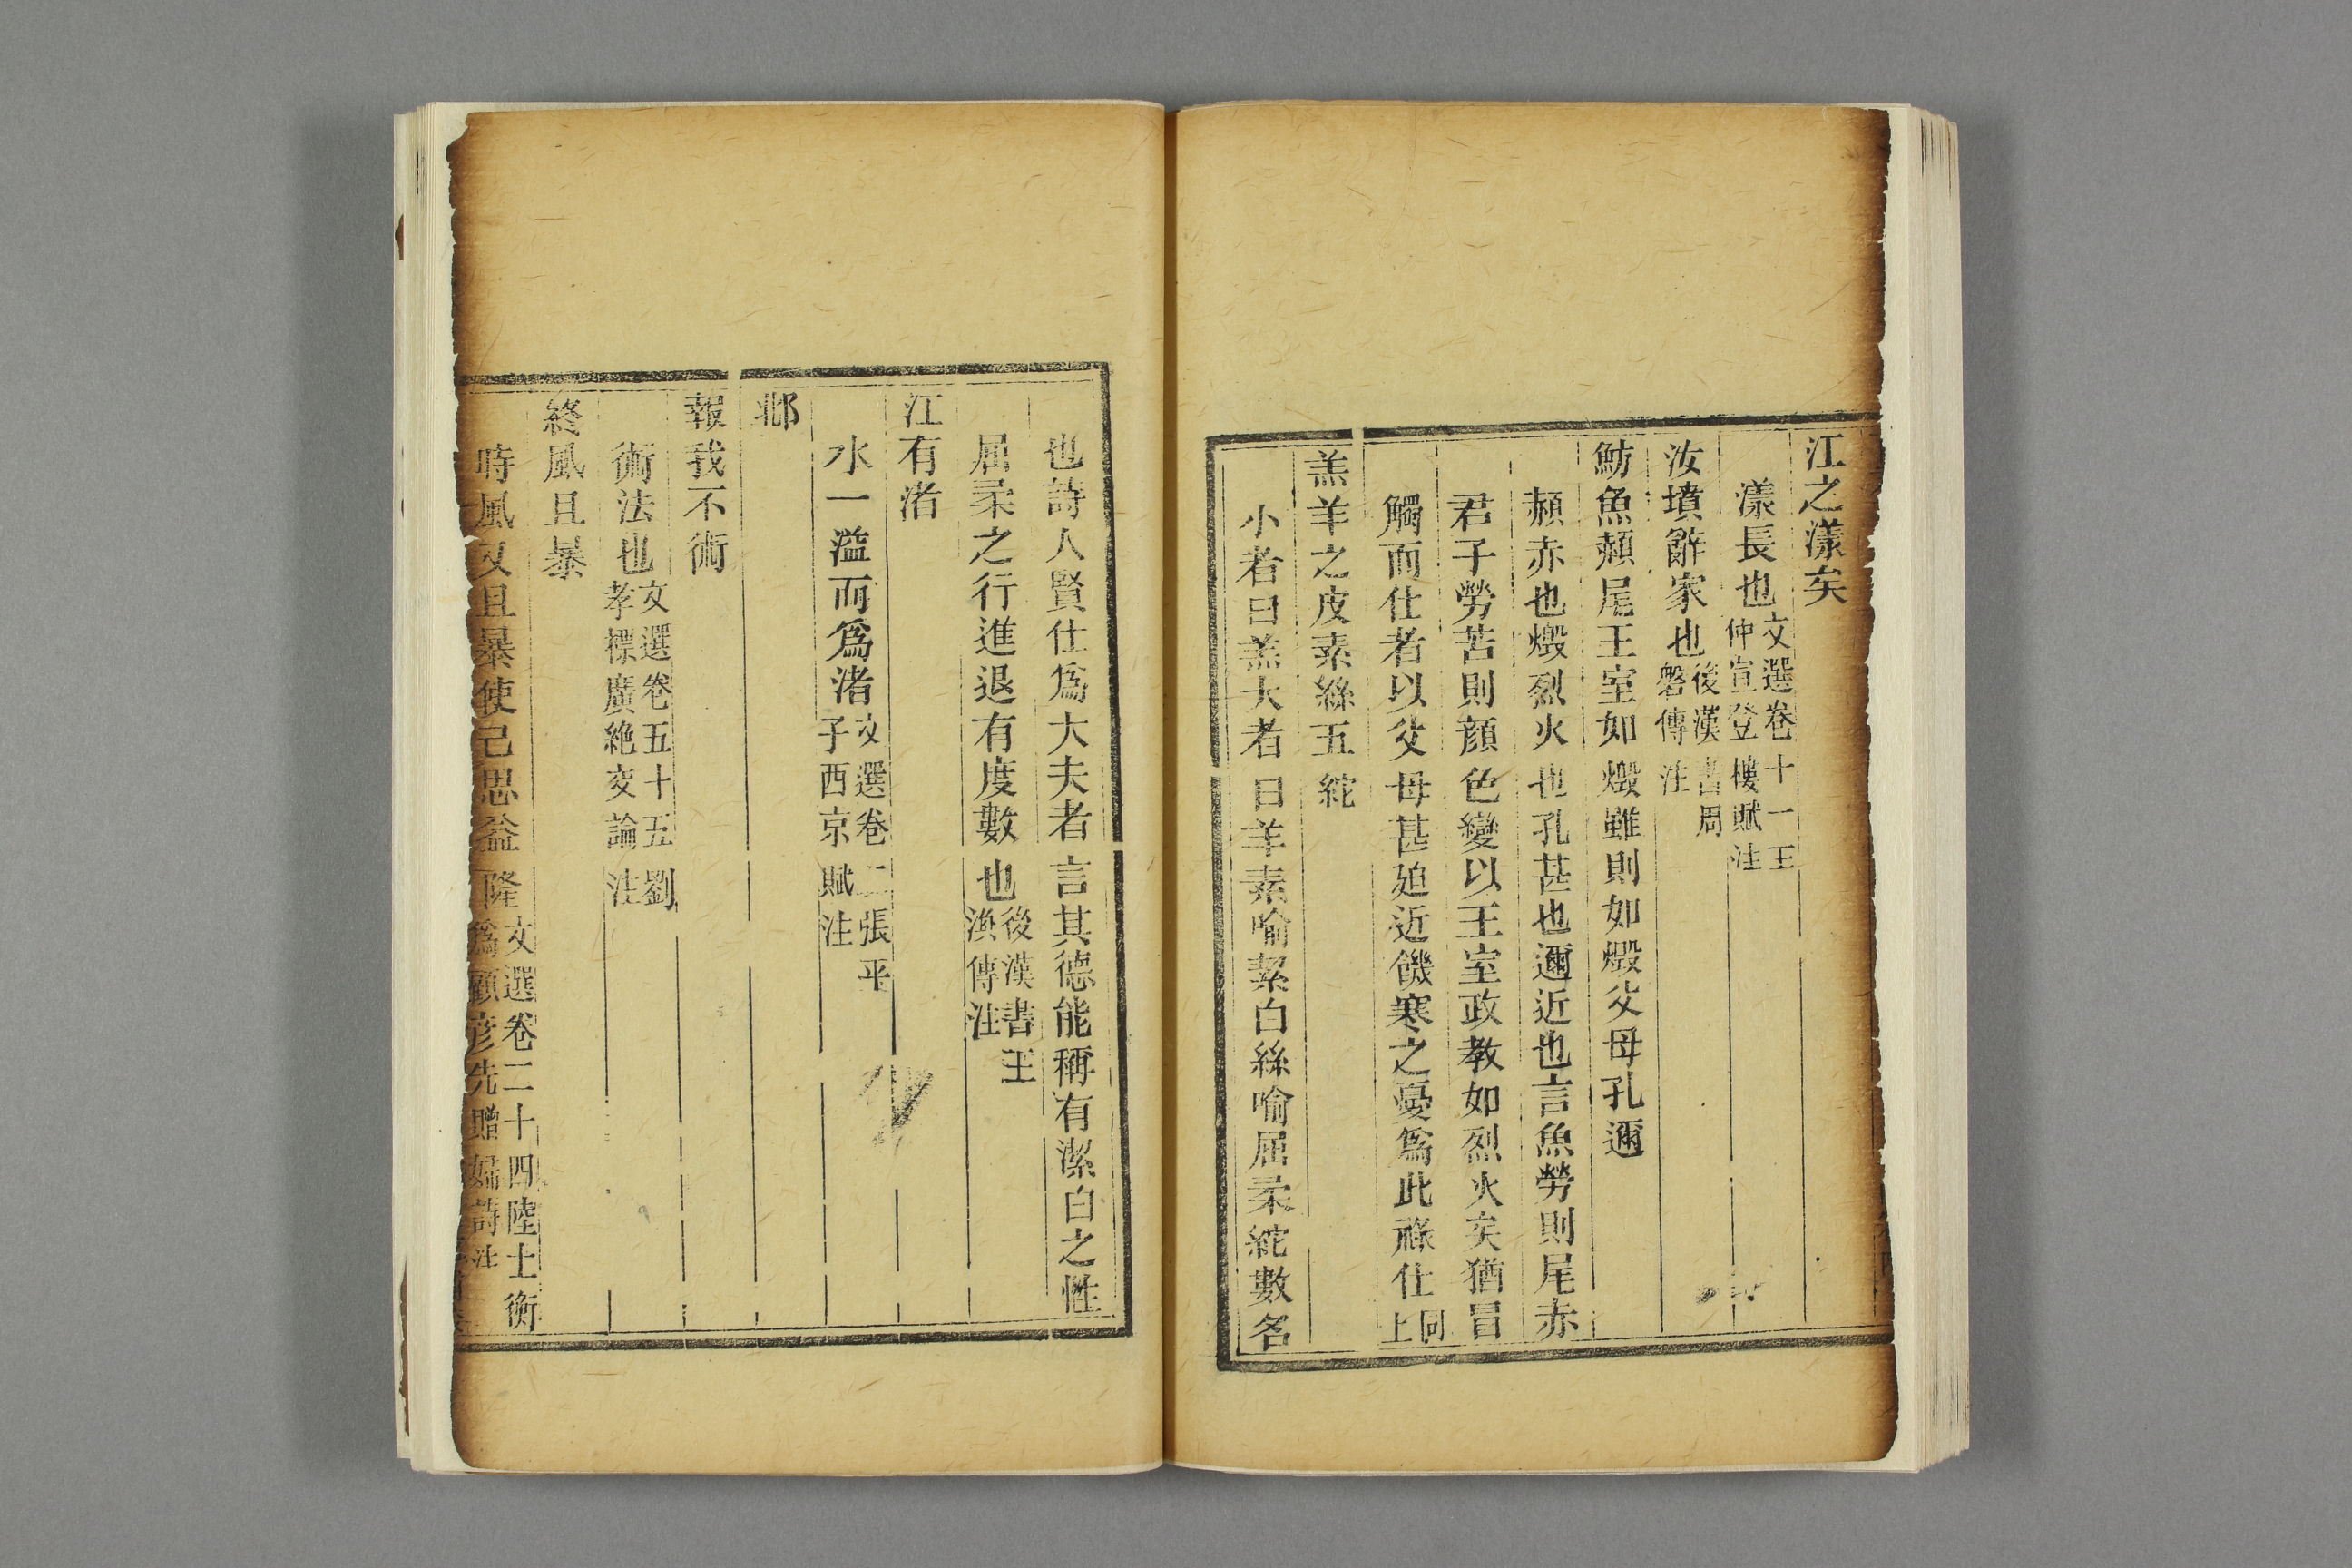 江之漾矣
漾長也文選卷十一王仲宣登樓賦注
汝墳辭家也後漢書周磐傳注
魴魚赬尾王室如燬雖則如燬父母孔邇
赬赤也燬烈火也孔甚也邇近也言魚勞則尾赤
君子勞苦則顔色變以王室政教如烈火矣猶冒
觸而仕者以父母甚廹近饑寒之憂爲此祿仕同上
羔羊之皮素絲五紽
小者曰羔大者曰羊素喻絜白絲喻屈柔紽數名
也詩人賢仕爲大夫者言其德能稱有潔白之性
屈柔之行進退有度數也後漢書王渙傳注
江有渚
水一溢而爲渚文選卷二張平子西京賦注
邶
報我不術
術法也文選卷五十五劉孝標廣絶交論注
終風且暴
時風又且暴使己思益隆文選卷二十四陸士衡爲顧彦先贈婦詩注